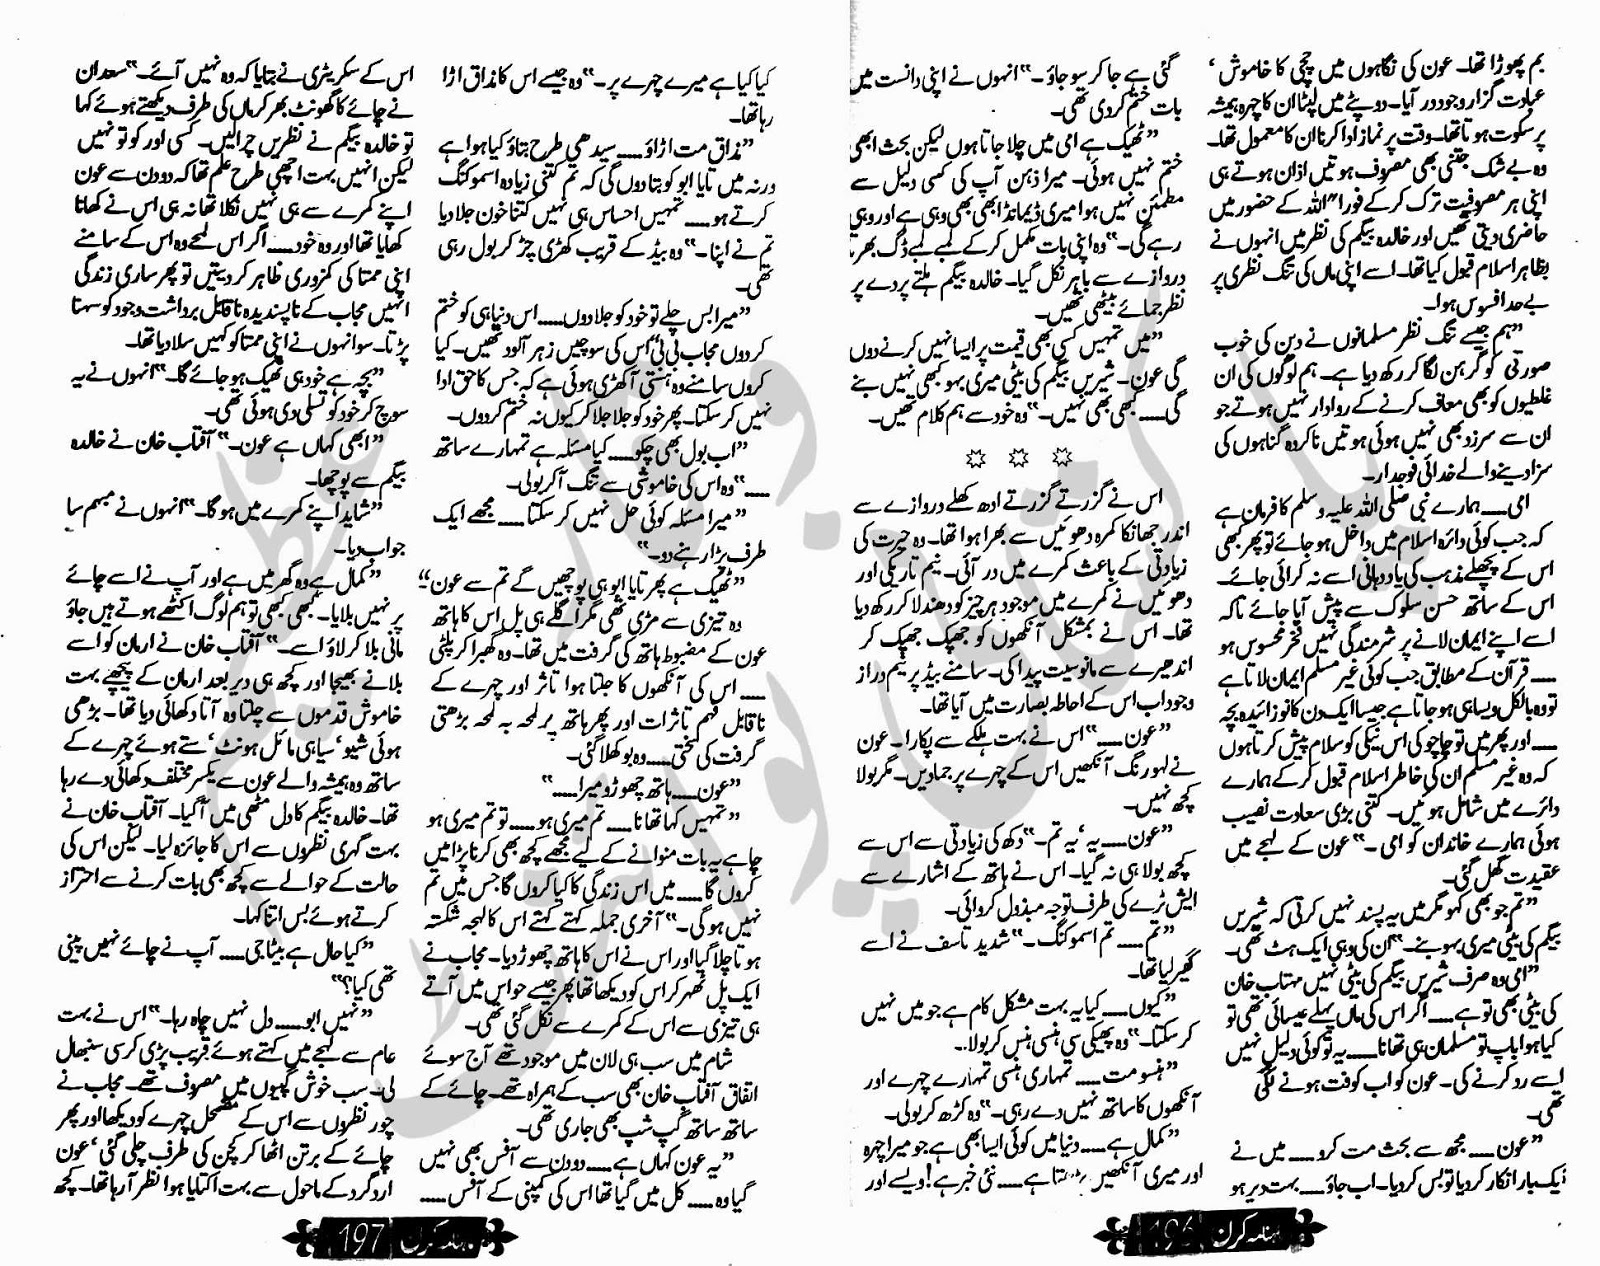 بم پھوڑا تھا۔ عون کی نگاہوں میں چچی کا خاموش ،
عبادت گزار وجود در آیا۔ دوپٹے میں لپٹا ان کا چہرہ ہمیشہ
پرسکوت ہوتا تھا۔ وقت پر نماز ادا کرنا ان کا معمول تھا۔
وہ بے شک جتنی بھی مصروف ہوتیں اذان ہوتے ہی
اپنی ہر مصروفیت ترک کرکے فورا" اللہ کے حضور میں
حاضری دیتی تھیں اور خالدہ بیگم کی نظر میں انہوں نے
بظاہر اسلام قبول کیا تھا۔ اسے اپنی ماں کی تنگ نظری پر
بے حد افسوس ہوا۔
"ہم جیسے تنگ نظر مسلمانوں نے دین کی خوب
صورتی کو گرہن لگا کر رکھ دیا ہے۔ ہم لوگوں کی ان
غلطیوں کو بھی معاف کرنے کے روادار نہیں ہوتے جو
ان سے سرزد بھی نہیں ہوئی ہوتیں ناکردہ گناہوں کی
سزا دینے والے خدائی فوجدار۔
امی ۔۔۔۔ ہمارے نبی صلی اللہ علیہ وسلم کا فرمان ہے
کہ جب کوئی دائرہ اسلام میں داخل ہو جائے تو پھر کبھی
اس کے پچھلے مذہب کی یاد دہانی اسے نہ کرائی جائے۔
اس کے ساتھ حسن سلوک سے پیش آیا جائے تاکہ
اسے اپنے ایمان لانے پر شرمندگی نہیں فخر محسوس ہو
۔۔۔۔ قرآن کے مطابق جب کوئی غیر مسلم ایمان لاتا ہے
تو وہ بالکل ویسا ہی ہو جاتا ہے جیسا ایک دن کا نوزائیدہ بچہ
۔۔۔۔ اور پھر میں تو چاچو کی اس نیکی کو سلام پیش کرتا ہوں
کہ وہ غیر مسلم ان کی خاطر اسلام قبول کرکے ہمارے
دائرے میں شامل ہوئیں۔ کتنی بڑی سعادت نصیب
ہوئی ہمارے خاندان کو امی ۔" عون کے لہجے میں
عقیدت گھل گئی۔
"تم جو بھی کہو مگر میں یہ پسند نہیں کرتی کہ شیریں
بیگم کی بیٹی میری بہو بنے۔" ان کی وہی ایک ہٹ تھی۔
"امی وہ صرف شیریں بیگم کی بیٹی نہیں مہتاب خان
کی بیٹی بھی تو ہے ۔۔۔۔ اگر اس کی ماں پہلے عیسائی تھی تو
کیا ہوا باپ تو مسلمان ہی تھا نا ۔۔۔۔ یہ تو کوئی دلیل نہیں
اسے رد کرنے کی۔ عون کو اب کوفت ہونے لگی
تھی۔
"عون ۔۔۔۔ مجھ سے بحث مت کرو ۔۔۔۔ میں نے
ایک بار انکار کردیا تو بس کردیا۔ اب جاؤ ۔۔۔۔ بہت دیر ہو
گئی ہے جا کر سو جاؤ۔" انہوں نے اپنی دانست میں
بات ختم کردی تھی۔
"ٹھیک ہے امی میں چلا جاتا ہوں لیکن بحث ابھی
ختم نہیں ہوئی۔ میرا ذہن آپ کی کسی دلیل سے
مطمئن نہیں ہوا میری ڈیمانڈ ابھی بھی وہی ہے اور وہی
رہے گی۔" وہ اپنی بات مکمل کرکے لمبے لمبے ڈگ بھرتا
دروازے سے باہر نکل گیا۔ خالدہ بیگم ہلتے پردے پر
نظر جمائے بیٹھی تھیں۔
"میں تمہیں کسی بھی قیمت پر ایسا نہیں کرنے دوں
گی عون۔ شیریں بیگم کی بیٹی میری بہو کبھی نہیں بنے
گی ۔۔۔۔ کبھی بھی نہیں۔" وہ خود سے ہم کلام تھیں۔
۞ ۞ ۞
اس نے گزرتے گزرتے ادھ کھلے دروازے سے
اندر جھانکا کمرہ دھوئیں سے بھرا ہوا تھا۔ وہ حیرت کی
زیادتی کے باعث کمرے میں در آئی۔ نیم تاریکی اور
دھوئیں نے کمرے میں موجود ہر چیز کو دھندلا کر رکھ دیا
تھا۔ اس نے بمشکل آنکھوں کو جھپک جھپک کر
اندھیرے سے مانوسیت پیدا کی۔ سامنے بیڈ پر نیم دراز
وجود اب اس کے احاطہ بصارت میں آیا تھا۔
"عون ۔۔۔۔" اس نے بہت ہلکے سے پکارا۔ عون
نے لہو رنگ آنکھیں اس کے چہرے پر جمادیں۔ مگر بولا
کچھ نہیں۔
"عون ۔۔۔۔ یہ ' یہ تم۔" دکھ کی زیادتی سے اس سے
کچھ بولا ہی نہ گیا۔ اس نے ہاتھ کے اشارے سے
ایش ٹرے کی طرف توجہ مبذول کروائی۔
"تم ۔۔۔۔ تم اسموکنگ۔" شدید تاسف نے اسے
گھیر لیا تھا۔
"کیوں ۔۔۔۔ کیا یہ بہت مشکل کام ہے جو میں نہیں
کرسکتا۔" وہ پھیکی سی ہنسی ہنس کر بولا۔
"ہنسو مت ۔۔۔۔ تمہاری ہنسی تمہارے چہرے اور
آنکھوں کا ساتھ نہیں دے رہی۔" وہ کڑھ کر بولی۔
"کمال ہے ۔۔۔۔ دنیا میں کوئی ایسا بھی ہے جو میرا چہرہ
اور میری آنکھیں سکتا ہے ۔۔۔۔ نئی خبر ہے! ویسے اور
ماہنامہ کرن 196
کیا کیا ہے میرے چہرے پر۔" وہ جیسے اس کا مذاق اڑا
رہا تھا۔
"مذاق مت اڑاؤ ۔۔۔۔ سیدھی طرح بتاؤ کیا ہوا ہے
ورنہ میں تایا ابو کو بتا دوں گی کہ تم کتنی زیادہ اسموکنگ
کرتے ہو ۔۔۔۔ تمہیں احساس ہی نہیں کتنا خون جلا دیا
تم نے اپنا۔" وہ بیڈ کے قریب کھڑی چڑ کر بول رہی
تھی۔
"میرا بس چلے تو خود کو جلا دوں ۔۔۔۔ اس دنیا ہی کو ختم
کردوں مجاب بی بی" اس کی سوچیں زہر آلود تھیں۔ کیا
کروں سامنے وہ ہستی آکھڑی ہوئی ہے کہ جس کا حق ادا
نہیں کرسکتا۔ پھر خود کو جلا جلا کر کیوں نہ ختم کردوں۔
"اب بول بھی چکو ۔۔۔۔ کیا مسئلہ ہے تمہارے ساتھ
۔۔۔۔" وہ اس کی خاموشی سے تنگ آکر بولی۔
"میرا مسئلہ کوئی حل نہیں کرسکتا ۔۔۔۔ مجھے ایک
طرف پڑا رہنے دو۔"
"ٹھیک ہے پھر تایا ابو ہی پوچھیں گے تم سے عون"
وہ تیزی سے مڑی تھی مگر اگلے ہی پل اس کا ہاتھ
عون کے مضبوط ہاتھ کی گرفت میں تھا۔ وہ گھبرا کر پلٹی
۔۔۔۔ اس کی آنکھوں کا جلتا ہوا تاثر اور چہرے کے
ناقابل فہم تاثرات اور پھر ہاتھ پر لمحہ بہ لمحہ بڑھتی
گرفت کی سختی ۔۔۔۔ وہ بوکھلا گئی۔
"عون ۔۔۔۔ ہاتھ چھوڑو میرا ۔۔۔۔"
"تمہیں کہا تھا نا ۔۔۔۔ تم میری ہو ۔۔۔۔ تو تم میری ہو
چاہے یہ بات منوانے کے لیے مجھے کچھ بھی کرنا پڑا میں
کروں گا ۔۔۔۔ میں اس زندگی کا کیا کروں گا جس میں تم
نہیں ہوگی۔" آخری جملہ کہتے کہتے اس کا لہجہ شکستہ
ہوتا چلا گیا اور اس نے اس کا ہاتھ چھوڑ دیا۔ مجاب نے
ایک پل ٹھہر کر اس کو دیکھا تھا پھر جیسے حواس میں آتے
ہی تیزی سے اس کے کمرے سے نکل گئی تھی۔
شام میں سب ہی لان میں موجود تھے آج سوئے
اتفاق آفتاب خان بھی سب کے ہمراہ تھے۔ چائے کے
ساتھ ساتھ گپ شپ بھی جاری تھی۔
"یہ عون کہاں ہے ۔۔۔۔ دو دن سے آفس بھی نہیں
گیا وہ ۔۔۔۔ کل میں گیا تھا اس کی کمپنی کے آفس ۔۔۔۔
اس کے سکریٹری نے بتایا کہ وہ نہیں آئے۔" سعدان
نے چائے کا گھونٹ بھر کر ماں کی طرف دیکھتے ہوئے کہا
تو خالدہ بیگم نے نظریں چرا لیں۔ کسی اور کو تو نہیں
لیکن انہیں بہت اچھی طرح علم تھا کہ دو دن سے عون
اپنے کمرے سے ہی نہیں نکلا تھا نہ ہی اس نے کھانا
کھایا تھا اور وہ خود ۔۔۔۔ اگر اس لمحے وہ اس کے سامنے
اپنی ممتا کی کمزوری ظاہر کر دیتیں تو پھر ساری زندگی
انہیں مجاب کے ناپسندیدہ ناقابل برداشت وجود کو سہنا
پڑتا۔ سو انہوں نے اپنی ممتا کو کہیں سلا دیا تھا۔
"بچہ ہے خود ہی ٹھیک ہو جائے گا۔" انہوں نے یہ
سوچ کر خود کو تسلی دی ہوئی تھی۔
"ابھی کہاں ہے عون۔" آفتاب خان نے خالدہ
بیگم سے پوچھا۔
"شاید اپنے کمرے میں ہوگا۔" انہوں نے مبہم سا
جواب دیا۔
"کمال ہے وہ گھر میں ہے اور آپ نے اسے چائے
پر نہیں بلایا۔ کبھی کبھی تو ہم لوگ اکٹھے ہوتے ہیں جاؤ
مانی بلا کر لاؤ اسے۔" آفتاب خان نے ارمان کو اسے
بلانے بھیجا اور کچھ ہی دیر بعد ارمان کے پیچھے بہت
خاموش قدموں سے چلتا وہ آتا دکھائی دیا تھا۔ بڑھی
ہوئی شیو ' سیاہی مائل ہونٹ ' ستے ہوئے چہرے کے
ساتھ وہ ہمیشہ والے عون سے یکسر مختلف دکھائی دے رہا
تھا۔ خالدہ بیگم کا دل مٹھی میں آگیا۔ آفتاب خان نے
بہت گہری نظروں سے اس کا جائزہ لیا۔ لیکن اس کی
حالت کے حوالے سے کچھ بھی بات کرنے سے احتراز
کرتے ہوئے بس اتنا کہا۔
"کیا حال ہے بیٹا جی ۔۔۔۔ آپ نے چائے نہیں پینی
تھی کیا؟"
"نہیں ابو ۔۔۔۔ دل نہیں چاہ رہا۔" اس نے بہت
عام سے لہجے میں کہتے ہوئے قریب پڑی کرسی سنبھال
لی۔ سب خوش گپیوں میں مصروف تھے۔ مجاب نے
چور نظروں سے اس کے مضمحل چہرے کو دیکھا اور پھر
چائے کے برتن اٹھا کر کچن کی طرف چلی گئی ' عون
ارد گرد کے ماحول سے بہت اکتایا ہوا نظر آرہا تھا۔ کچھ
ماہنامہ کرن 197